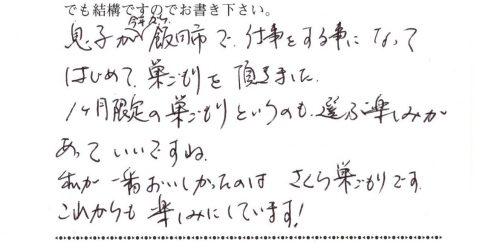 でも結構ですのでお書き下さい。
息子が今年から飯田市で、仕事をする事になって
はじめて、巣ごもりを頂きました。
1ヶ月限定の巣ごもりというのも、選ぶ楽しみが
あっていいですね。
私が一番おいしかったのは さくら巣ごもりです。
これからも楽しみにしています!